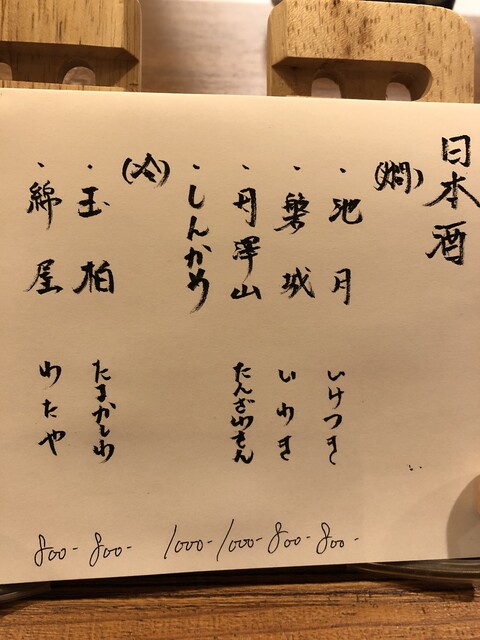 日本酒
(燗)
・池月 いけつき 800-
・磐城 いわき 800-
・丹澤山 たんざわさん 1000-
・しんかめ 1000-
(冷)
・玉柏 たまかしわ 800-
・綿屋 わたや 800-